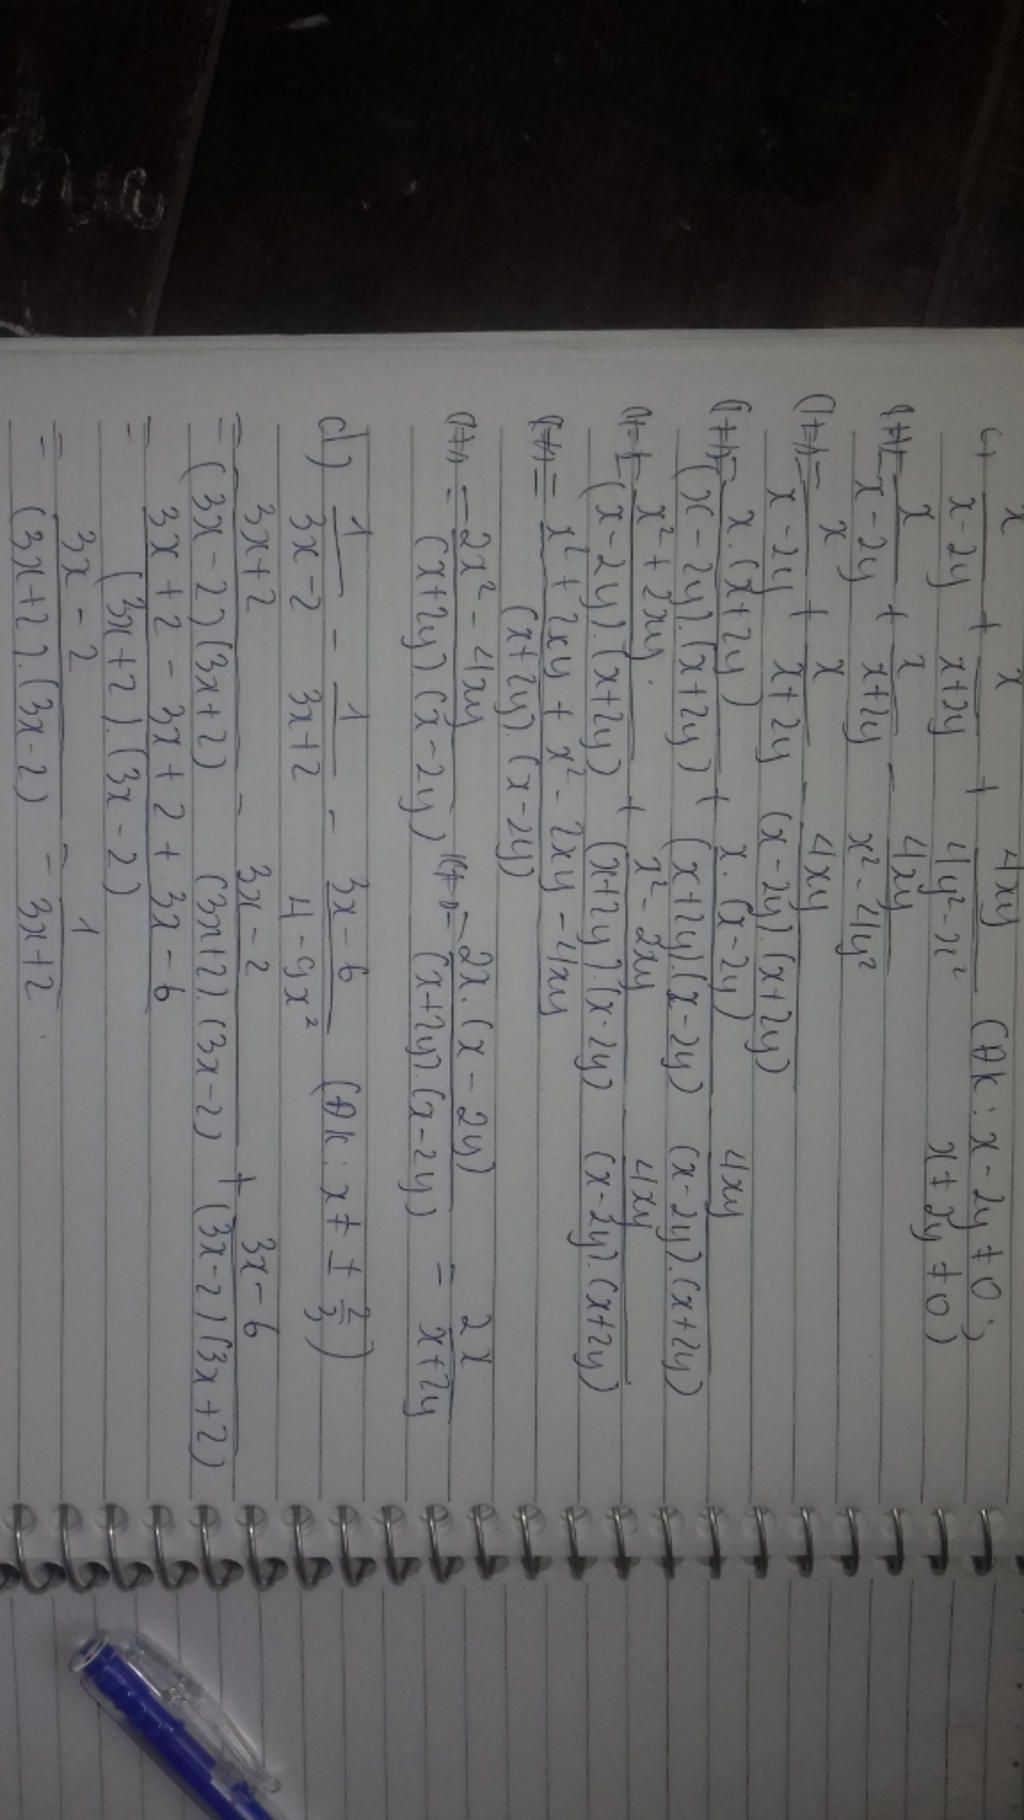 c) x/(x-2y) + x/(x+2y) + 4xy/(4y²-x²) (ĐK: x-2y ≠ 0; x+2y ≠ 0)
= x/(x-2y) + x/(x+2y) - 4xy/(x²-4y²)
= x/(x-2y) + x/(x+2y) 4xy/((x-2y).(x+2y))
= x.(x+2y)/((x-2y).(x+2y)) + x.(x-2y)/((x+2y).(x-2y)) 4xy/((x-2y).(x+2y))
= x²+2xy/((x-2y).(x+2y)) + x²-2xy/((x+2y).(x-2y)) 4xy/((x-2y).(x+2y))
= x²+2xy+x²-2xy-4xy/((x+2y).(x-2y))
= 2x²-4xy/((x+2y).(x-2y)) = 2x.(x-2y)/((x+2y).(x-2y)) = 2x/(x+2y)
d) 1/(3x-2) - 1/(3x+2) - 3x-6/(4-9x²) (ĐK: x ≠ ± 2/3)
= 3x+2/((3x-2).(3x+2)) - 3x-2/((3x+2).(3x-2)) + 3x-6/((3x-2)(3x+2))
= 3x+2-3x+2+3x-6/((3x+2).(3x-2))
= 3x-2/((3x+2).(3x-2)) = 1/(3x+2).